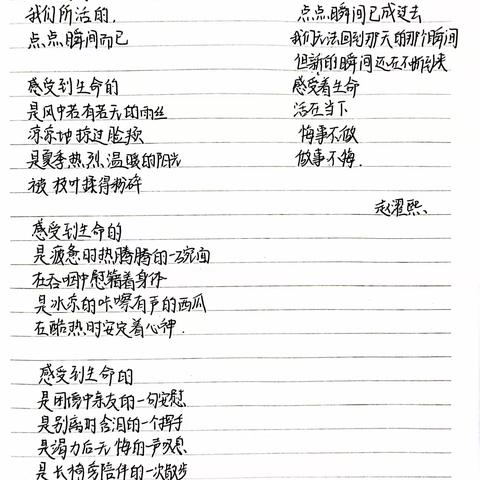 我们所活的,
点点瞬间而已
感受到生命的
是风中若有若无的雨丝
凉凉地掠过脸颊
是夏季热烈温暖的阳光
被枝叶揉得粉碎
感受到生命的
是疲惫时热腾腾的一碗面
在吞咽中慰籍着身体
是冰冻的咔嚓有声的西瓜
在酷热时安定着心神.
感受到生命的
是困窘中亲友的一句安慰
是别离时含泪的一个挥手
是竭力后无悔的一声叹息
是长椅旁陪伴的一次散步
点点瞬间已成过去
我们无法回到那天的那个瞬间
但新的瞬间还在不断到来
感受着生命
活在当下
悔事不做
做事不悔.
赵濯熙、